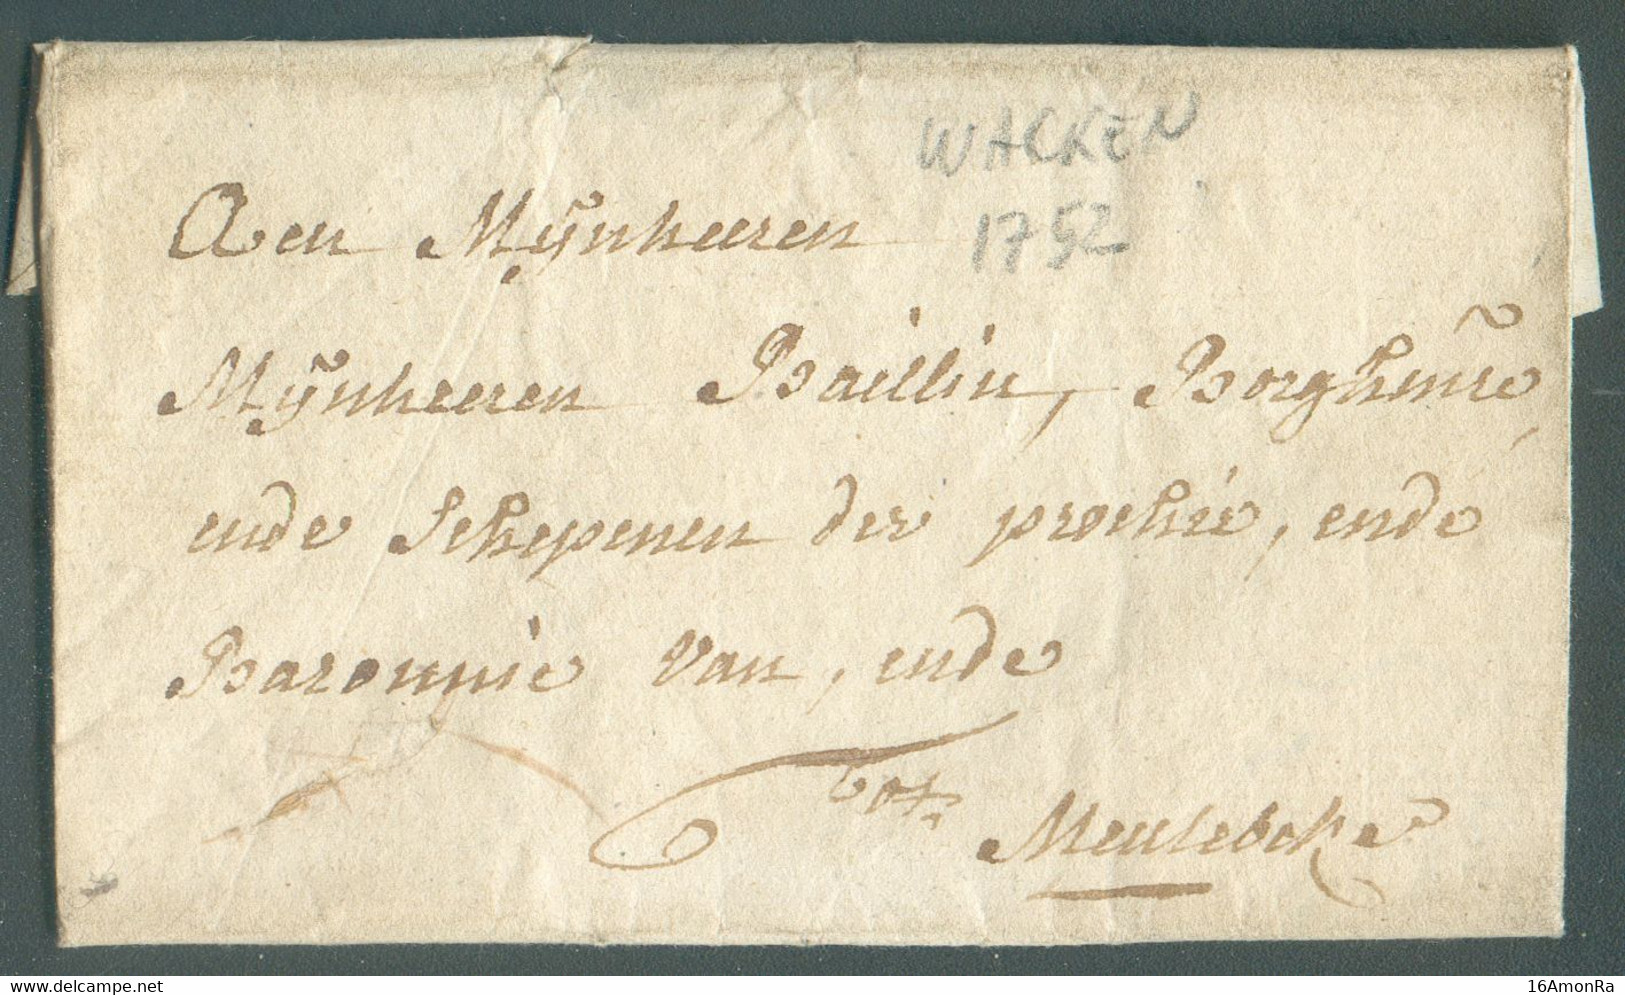 WACKEN
1752
Aen Mÿnheeren
Mÿnheeren Bailliu, Borghmre
ende Schepenen der prochie, ende
Baronnie van, ende
tot
Meulebeke
delcampe.net
16AmonRa